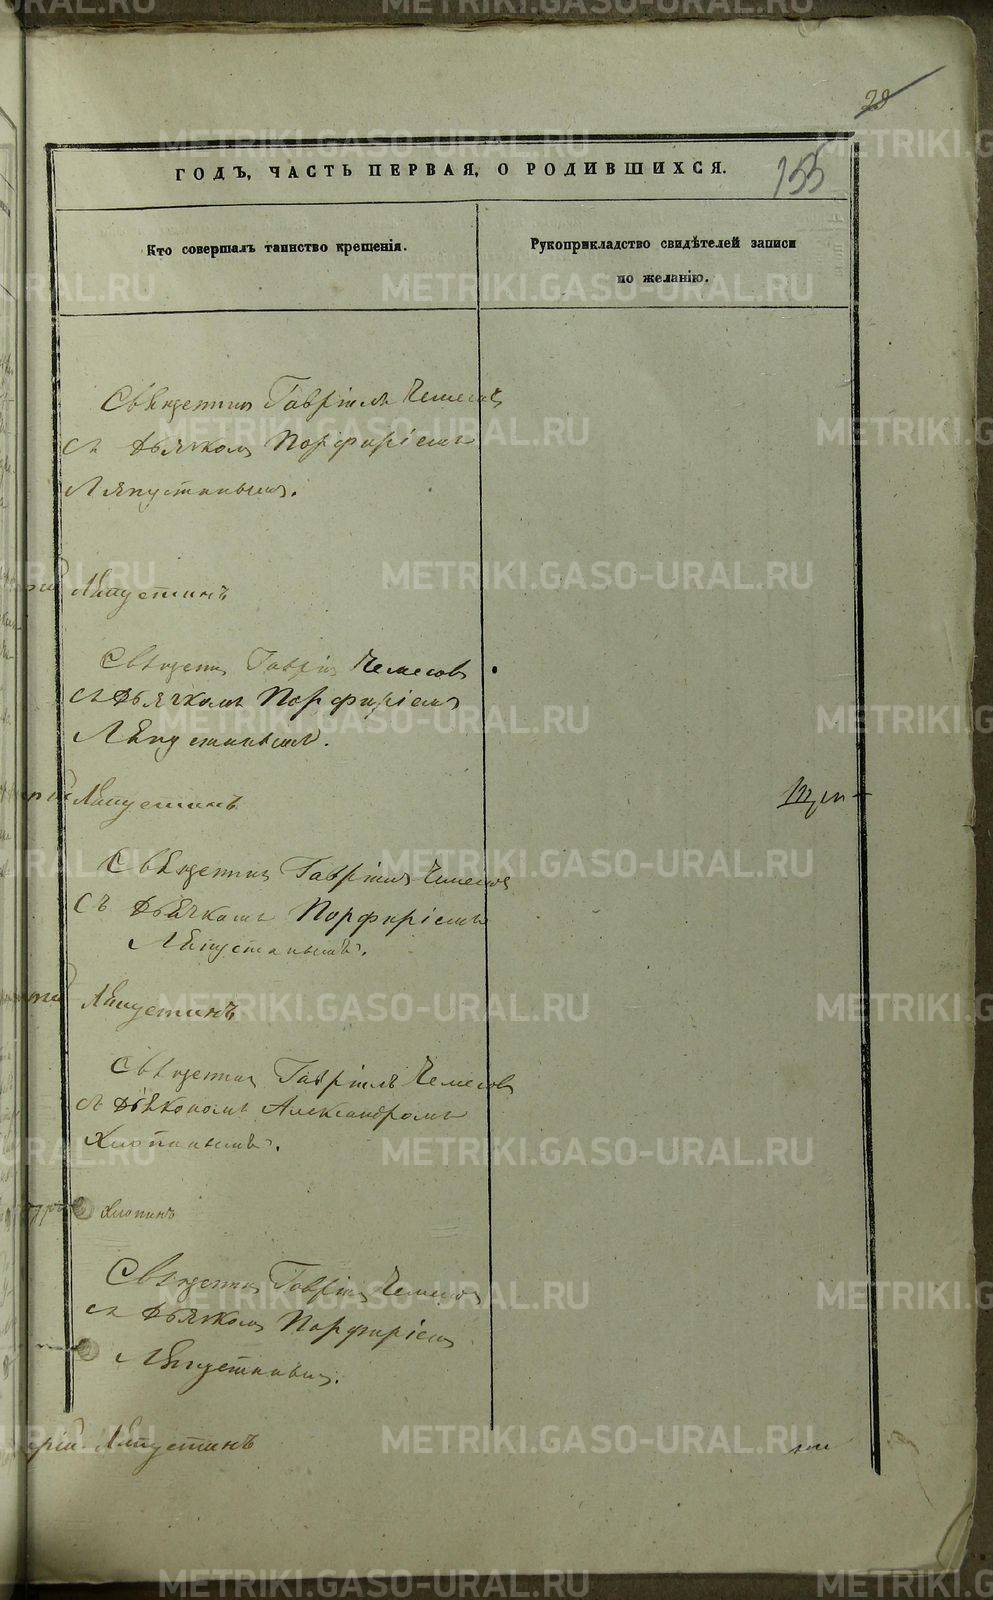 28
ГОДЪ, ЧАСТЬ ПЕРВАЯ, О РОДИВШИХСЯ.
155
Кто совершалъ таинство крещенія.
Рукоприкладство свидѣтелей записи
по желанію.
Священник Гавріилъ Чемесов
съ дьячком Порфиріемъ
Ляпустиным.
Ляпустинъ
Священ Гаврі Чемесов
съ дьячкомъ Порфиріем
Ляпустинымъ.
Ляпустинъ
Священник Гавріил Чемесов
Съ дьячкомъ Порфиріемъ
Ляпустинымъ.
Ляпустинъ
Священник Гавріилъ Чемесов
съ дьякономъ Александромъ
Хлопинымъ.
Хлопинъ
Священник Гаврі Чемесов
съ дьячком Порфиріем
Ляпустиным.
рій Ляпустинъ
METRIKI.GASO-URAL.RU